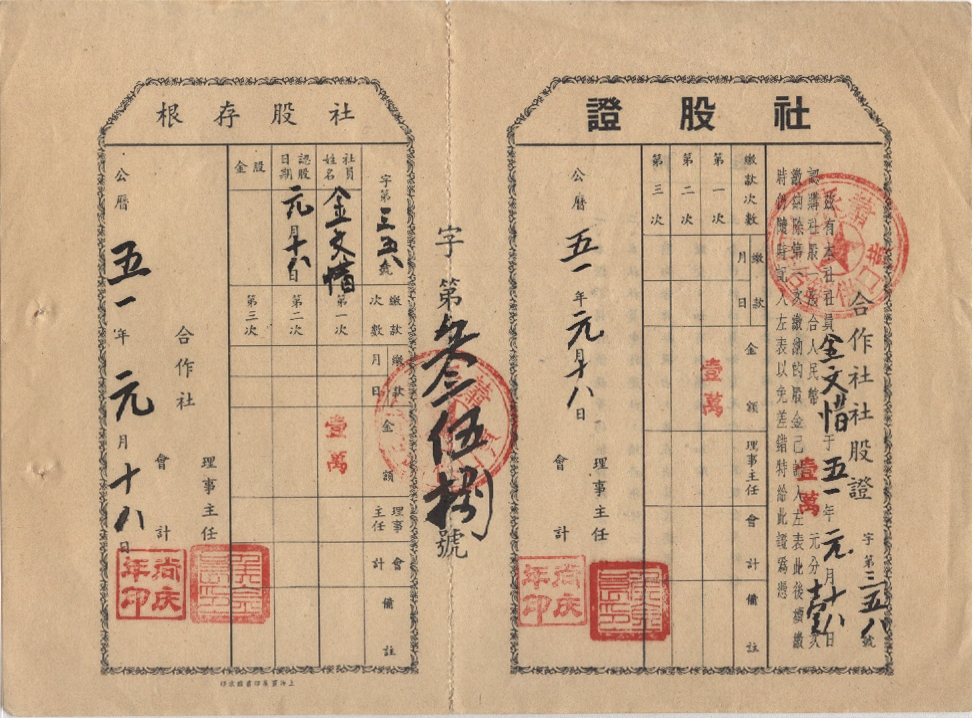 社股證
合作社社股證 字第三五八號
茲有本社社員金文惜于五一年元月十八日
認購社股 股合人民幣壹萬元分壹次
繳納除第一次繳納的股金已記入左表此後續繳
時仍隨時記入左表以免差錯特給此證爲憑
繳款次數 繳款 月 日 金額 理事主任 會計 備註
第一次 壹萬
第二次
第三次
理事主任
會計
公曆 五一年元月十八日
尚庆年印
字第叁伍捌號
社股存根
字第三五八號 繳款次數 繳款 月 日 金額 理事主任 會計 備註
社員姓名 金文惜 第一次 壹萬
認股日期 元月十八日 第二次
股金 第三次
理事主任
合作社 會計
公曆 五一年元月十八日
尚庆年印